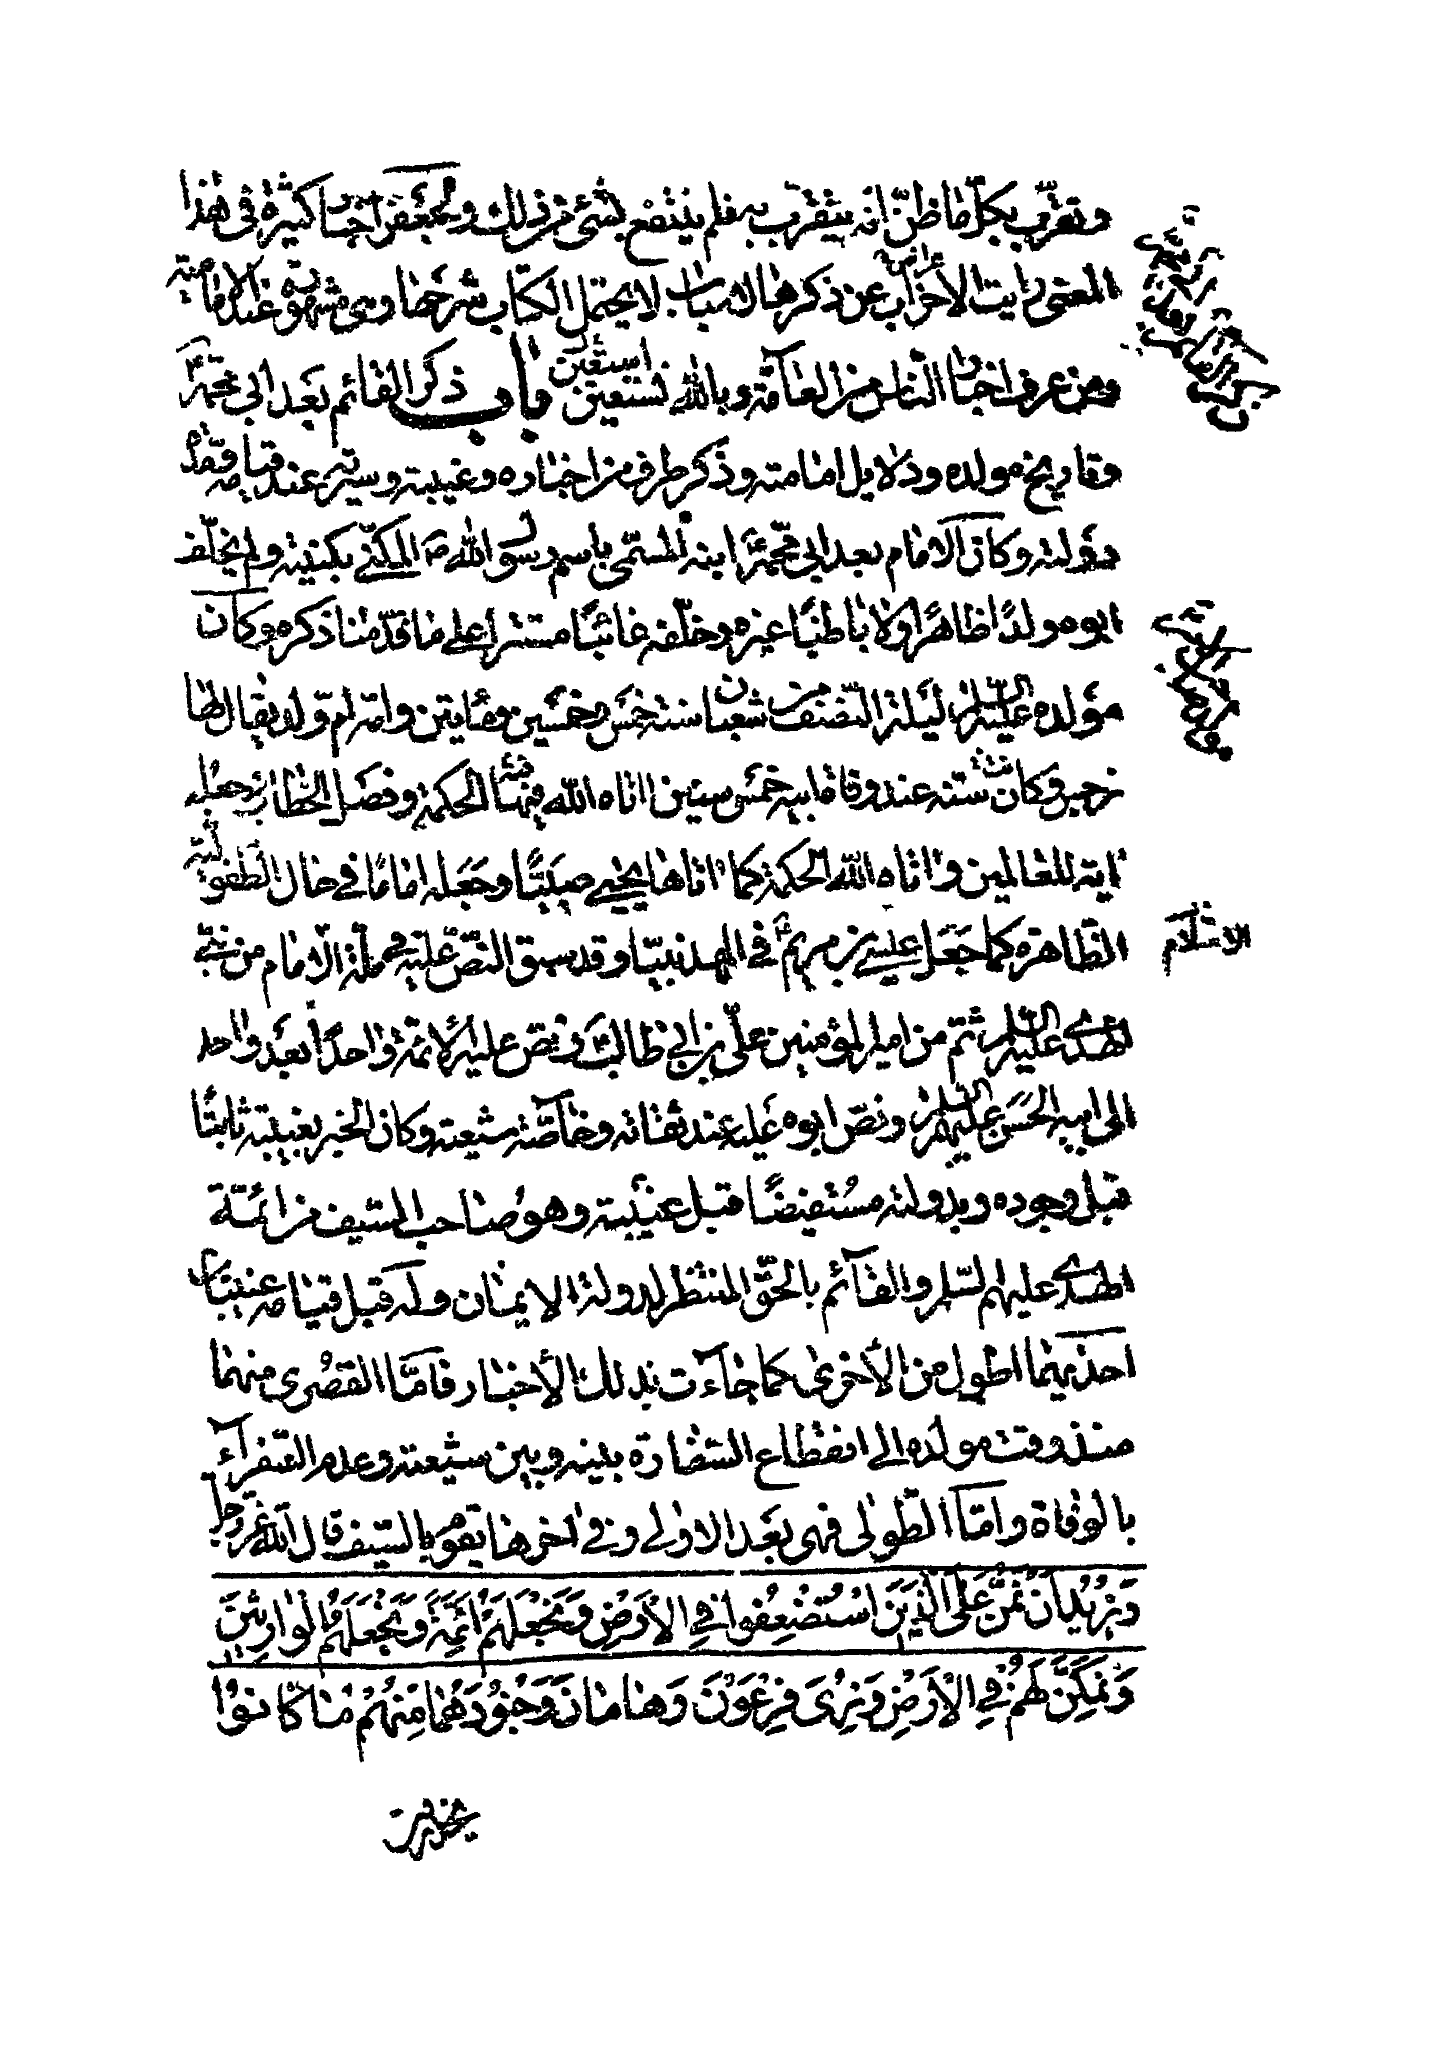 وتقرّب بكلّ ما ظنّ انه يتقرب به فلم ينتفع بشئ من ذلك ولجعفر اخبار كثيرة فى هذا
المعنى رايت الاضراب عن ذكرها لاسباب لا يحتمل الكتاب شرحها وهى مشهورة عند الامامية
ومن عرف اخبار الناس من العامّة وبالله نستعين استعين باب ذكر القائم بعد ابى محمّد
وتاريخ مولده ودلايل امامته وذكر طرف من اخباره وغيبته وسيرته عند قيامه ومدّة
دولته وكان الامام بعد ابى محمّد ابنه المسمّى باسم رسول الله ص المكنّى بكنيته ولم يخلّف
ابوه ولدًا ظاهرًا ولا باطنًا غيره وخلّفه غائبًا مستترا على ما قدّمنا ذكره وكان
مولده عليه السّلم ليلة النّصف من شعبان سنة خمس وخمسين ومايتين وامّه امّ ولد يقال لها
نرجس وكان سنّه عند وفاة ابيه خمس سنين اتاه الله فيها الحكمة وفصل الخطاب وجعله
اية للعالمين واتاه الله الحكمة كما اتاها يحيى صبيّا وجعله امامًا فى حال الطفولية
الظاهرة كما جعل عيسى بن مريم فى المهد نبيّا وقد سبق النصّ عليه فى ملّة الاسلام من نبىّ
الهدى عليه السّلم ثم من امير المؤمنين علىّ بن ابى طالب ونصّ عليه الائمة واحدًا بعد واحد
الى ابيه الحسن عليهم السّلم ونصّ ابوه عليه عند ثقاته وخاصّة شيعته وكان الخبر بغيبته ثابتًا
قبل وجوده وبدولته مستفيضًا قبل غيبته وهو صاحب السّيف من ائمّة
الهدى عليهم السّلم والقائم بالحقّ المنتظر لدولة الايمان وله قبل قيامه غيبتان
احديهما اطول من الأخرى كما جاءت بذلك الأخبار فامّا القصرى منهما
منذ وقت مولده الى انقطاع السّفارة بينه وبين شيعته وعدم السّفراء
بالوفاة وامّا الطّولى فهى بعد الاولى وفى اخرها يقوم بالسّيف قال الله عزّ وجل
وَنُرِيْدُ اَنْ نَمُنَّ عَلَى الَّذِيْنَ اسْتُضْعِفُوا فِي الْأَرْضِ وَنَجْعَلَهُمْ اَئِمَّةً وَنَجْعَلَهُمُ الْوَارِثِيْنَ
وَنُمَكِّنَ لَهُمْ فِي الْأَرْضِ وَنُرِىَ فِرْعَوْنَ وَهَامَانَ وَجُنُوْدَهُمَا مِنْهُمْ مَا كَانُوْا
الاسلام
يحذرون